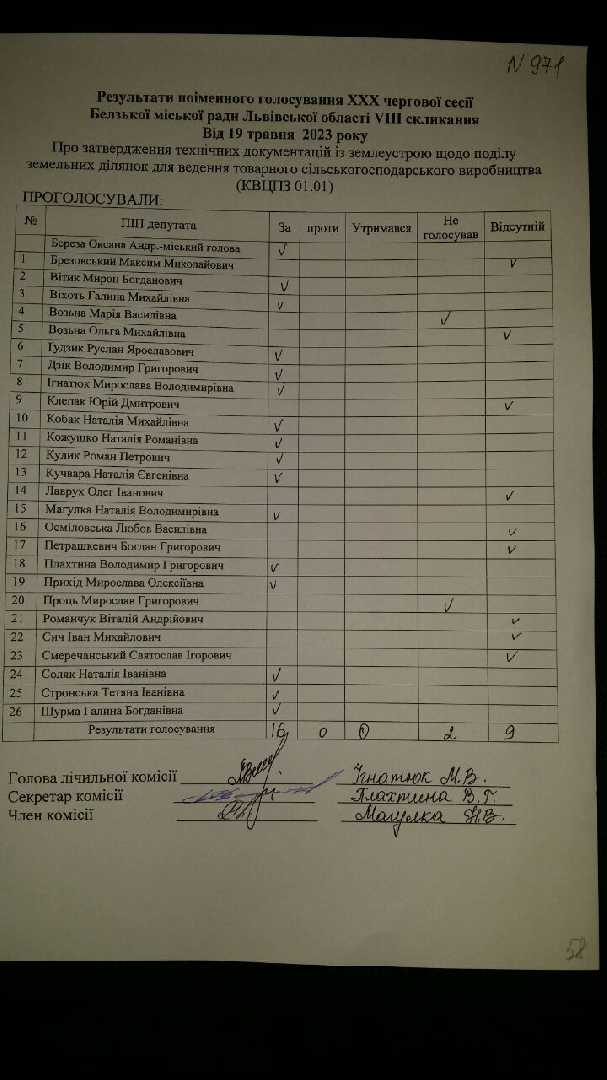 N 971
Результати поіменного голосування ХХХ чергової сесії
Белзької міської ради Львівської області VІІІ скликання
Від 19 травня 2023 року
Про затвердження технічних документацій із землеустрою щодо поділу
земельних ділянок для ведення товарного сільськогосподарського виробництва
(КВЦПЗ 01.01)
ПРОГОЛОСУВАЛИ:
№ ПІП депутата За проти Утримався Не голосував Відсутній
Береза Оксана Андр.-міський голова ✓
1 Брезовський Максим Миколайович ✓
2 Вітик Мирон Богданович ✓
3 Віхоть Галина Михайлівна ✓
4 Возьна Марія Василівна ✓
5 Возьна Ольга Михайлівна ✓
6 Гудзик Руслан Ярославович ✓
7 Дзік Володимир Григорович ✓
8 Ігнатюк Мирослава Володимирівна ✓
9 Клепак Юрій Дмитрович ✓
10 Кобак Наталія Михайлівна ✓
11 Кожушко Наталія Романівна ✓
12 Кулик Роман Петрович ✓
13 Кучвара Наталія Євгенівна ✓
14 Лаврух Олег Іванович ✓
15 Магулка Наталія Володимирівна ✓
16 Осміловська Любов Василівна ✓
17 Петрашкевич Богдан Григорович ✓
18 Плахтина Володимир Григорович ✓
19 Прихід Мирослава Олексіївна ✓
20 Проць Мирослав Григорович ✓
21 Романчук Віталій Андрійович ✓
22 Сич Іван Михайлович ✓
23 Смеречанський Святослав Ігорович ✓
24 Соляк Наталія Іванівна ✓
25 Стронська Тетяна Іванівна ✓
26 Шурма Галина Богданівна ✓
Результати голосування 16 0 0 2 9
Голова лічильної комісії Ігнатюк М.В.
Секретар комісії Плахтина В.Г.
Член комісії Магулка Н.В.
58